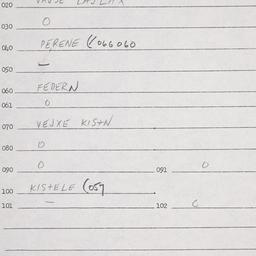 020
030 O
040 PERENE (066060
050 –
060 FEDERN
061 O
070 VEJXE KIStN
080 O
090 O 091 O
100 KIStELE (057
101 – 102